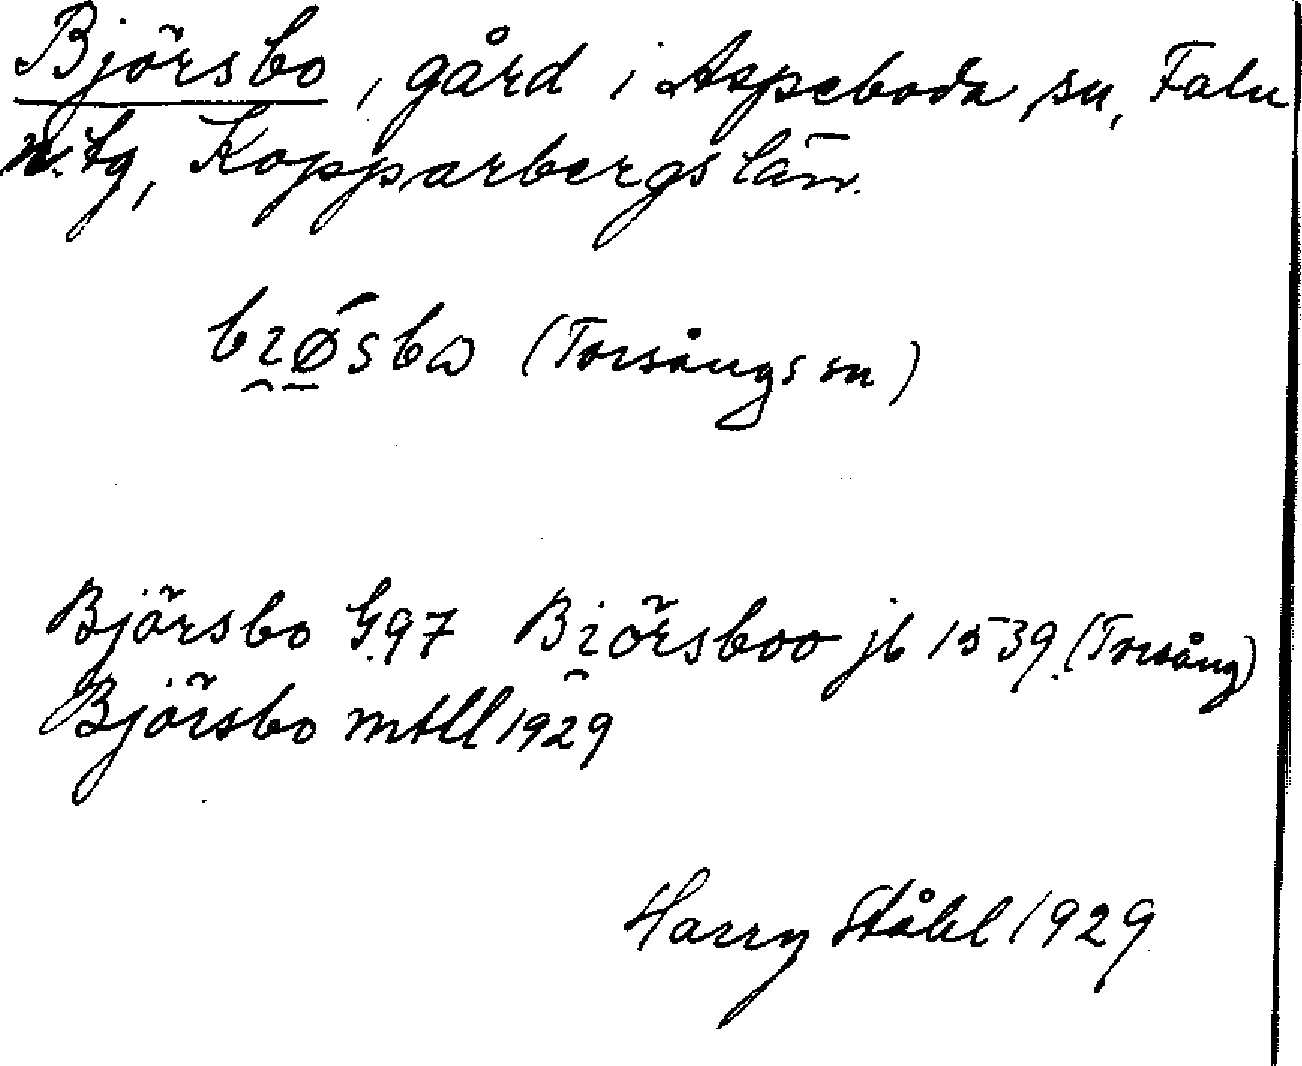 Björsbo, gård i Aspeboda sn, Falu
n. tg, Kopparbergs län.
(Torsångs sn)
Björsbo G.97 Biörsboo jb 1539. (Torsång)
Björsbo mtll 1929
Harry Ståhl 1929